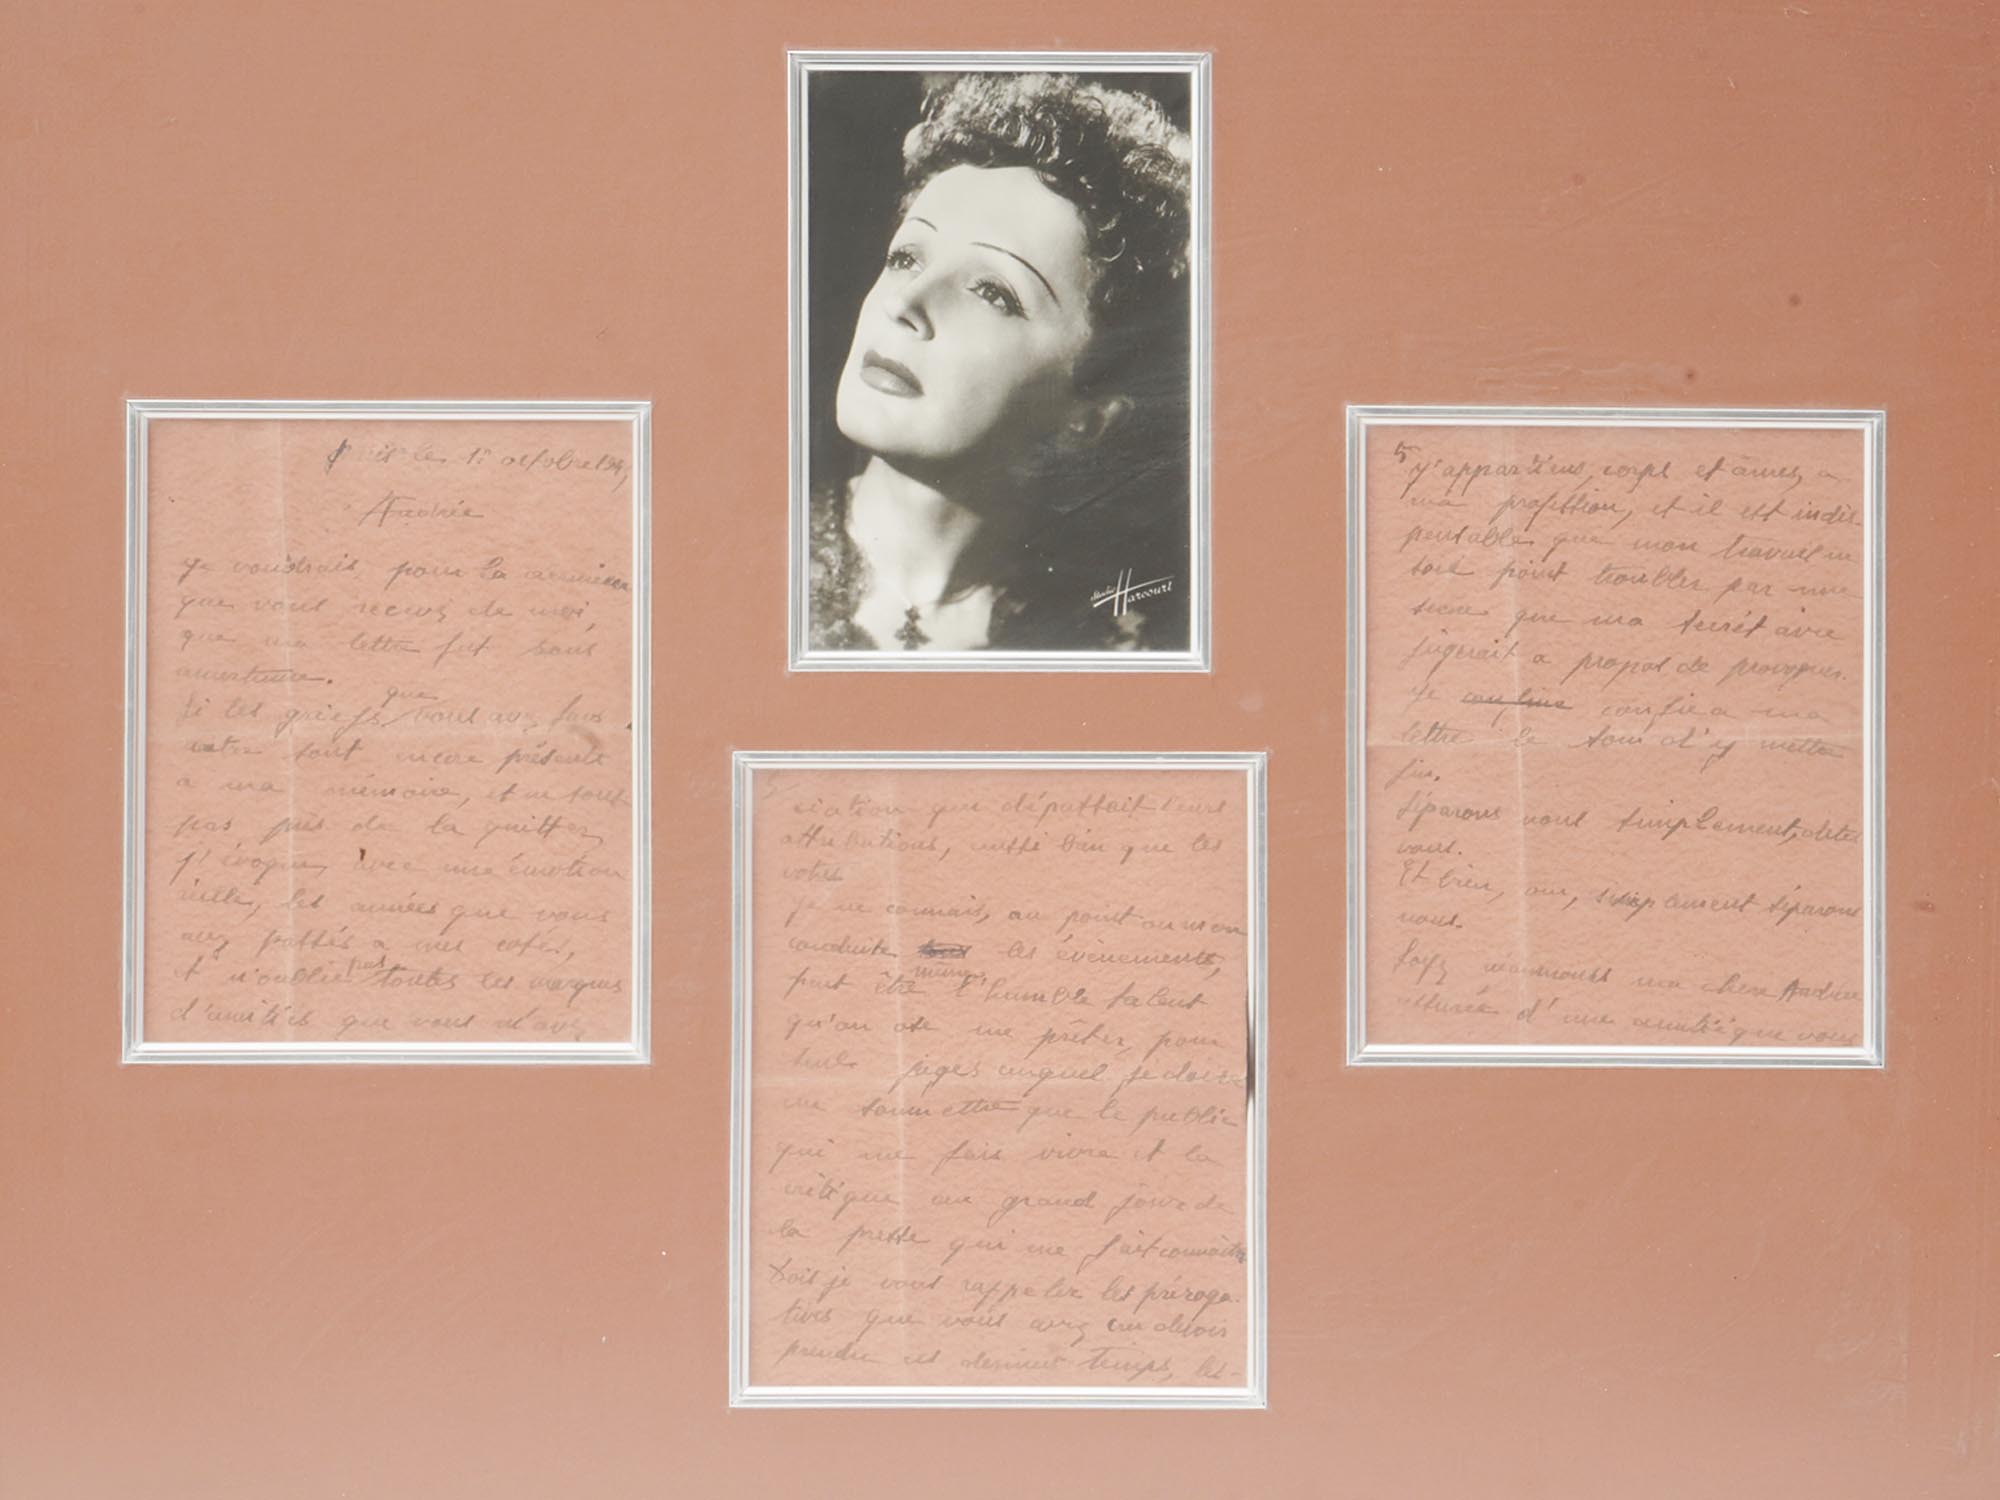 Paris le 1er octobre 194
Andrée
Je voudrais, pour la dernière
que vous recevez de moi,
que ma lettre fut sans
amertume.
Si les griefs que vous avez
sont encore présents
a ma mémoire, et ne sont
pas près de la quitter,
j'évoque, avec une émotion
réelle, les années que vous
avez passées a mes cotés,
et n'oublie pas toutes les marques
d'amitiés que vous m'avez
Studio Harcourt
5
ciation que dépassait leurs
attributions, aussi bien que les
votres
Je ne connais, au point ou mon
conduite les évènements,
peut être même l'humble talent
qu'on ose me prêter, pour
seuls juges auquel je doive
me soumettre que le public
qui me fais vivre et la
critique au grand jour de
la presse qui me fait connaitre
Dois je vous rappeler les préroga-
tives que vous avez cru devoir
prendre ces derniers temps, les-
5
J'appartiens, corps et âmes, a
ma profession, et il est indis-
pensable que mon travail ne
soit point troublés par une
scene que ma secrétaire
jugerait a propos de provoquer.
Je confie a ma
lettre le soin d'y mettre
fin.
Séparons nous simplement, dites
vous.
Et bien, oui, simplement séparons
nous.
Soyez ma chere Andrée
assurée d'une amitié que vous